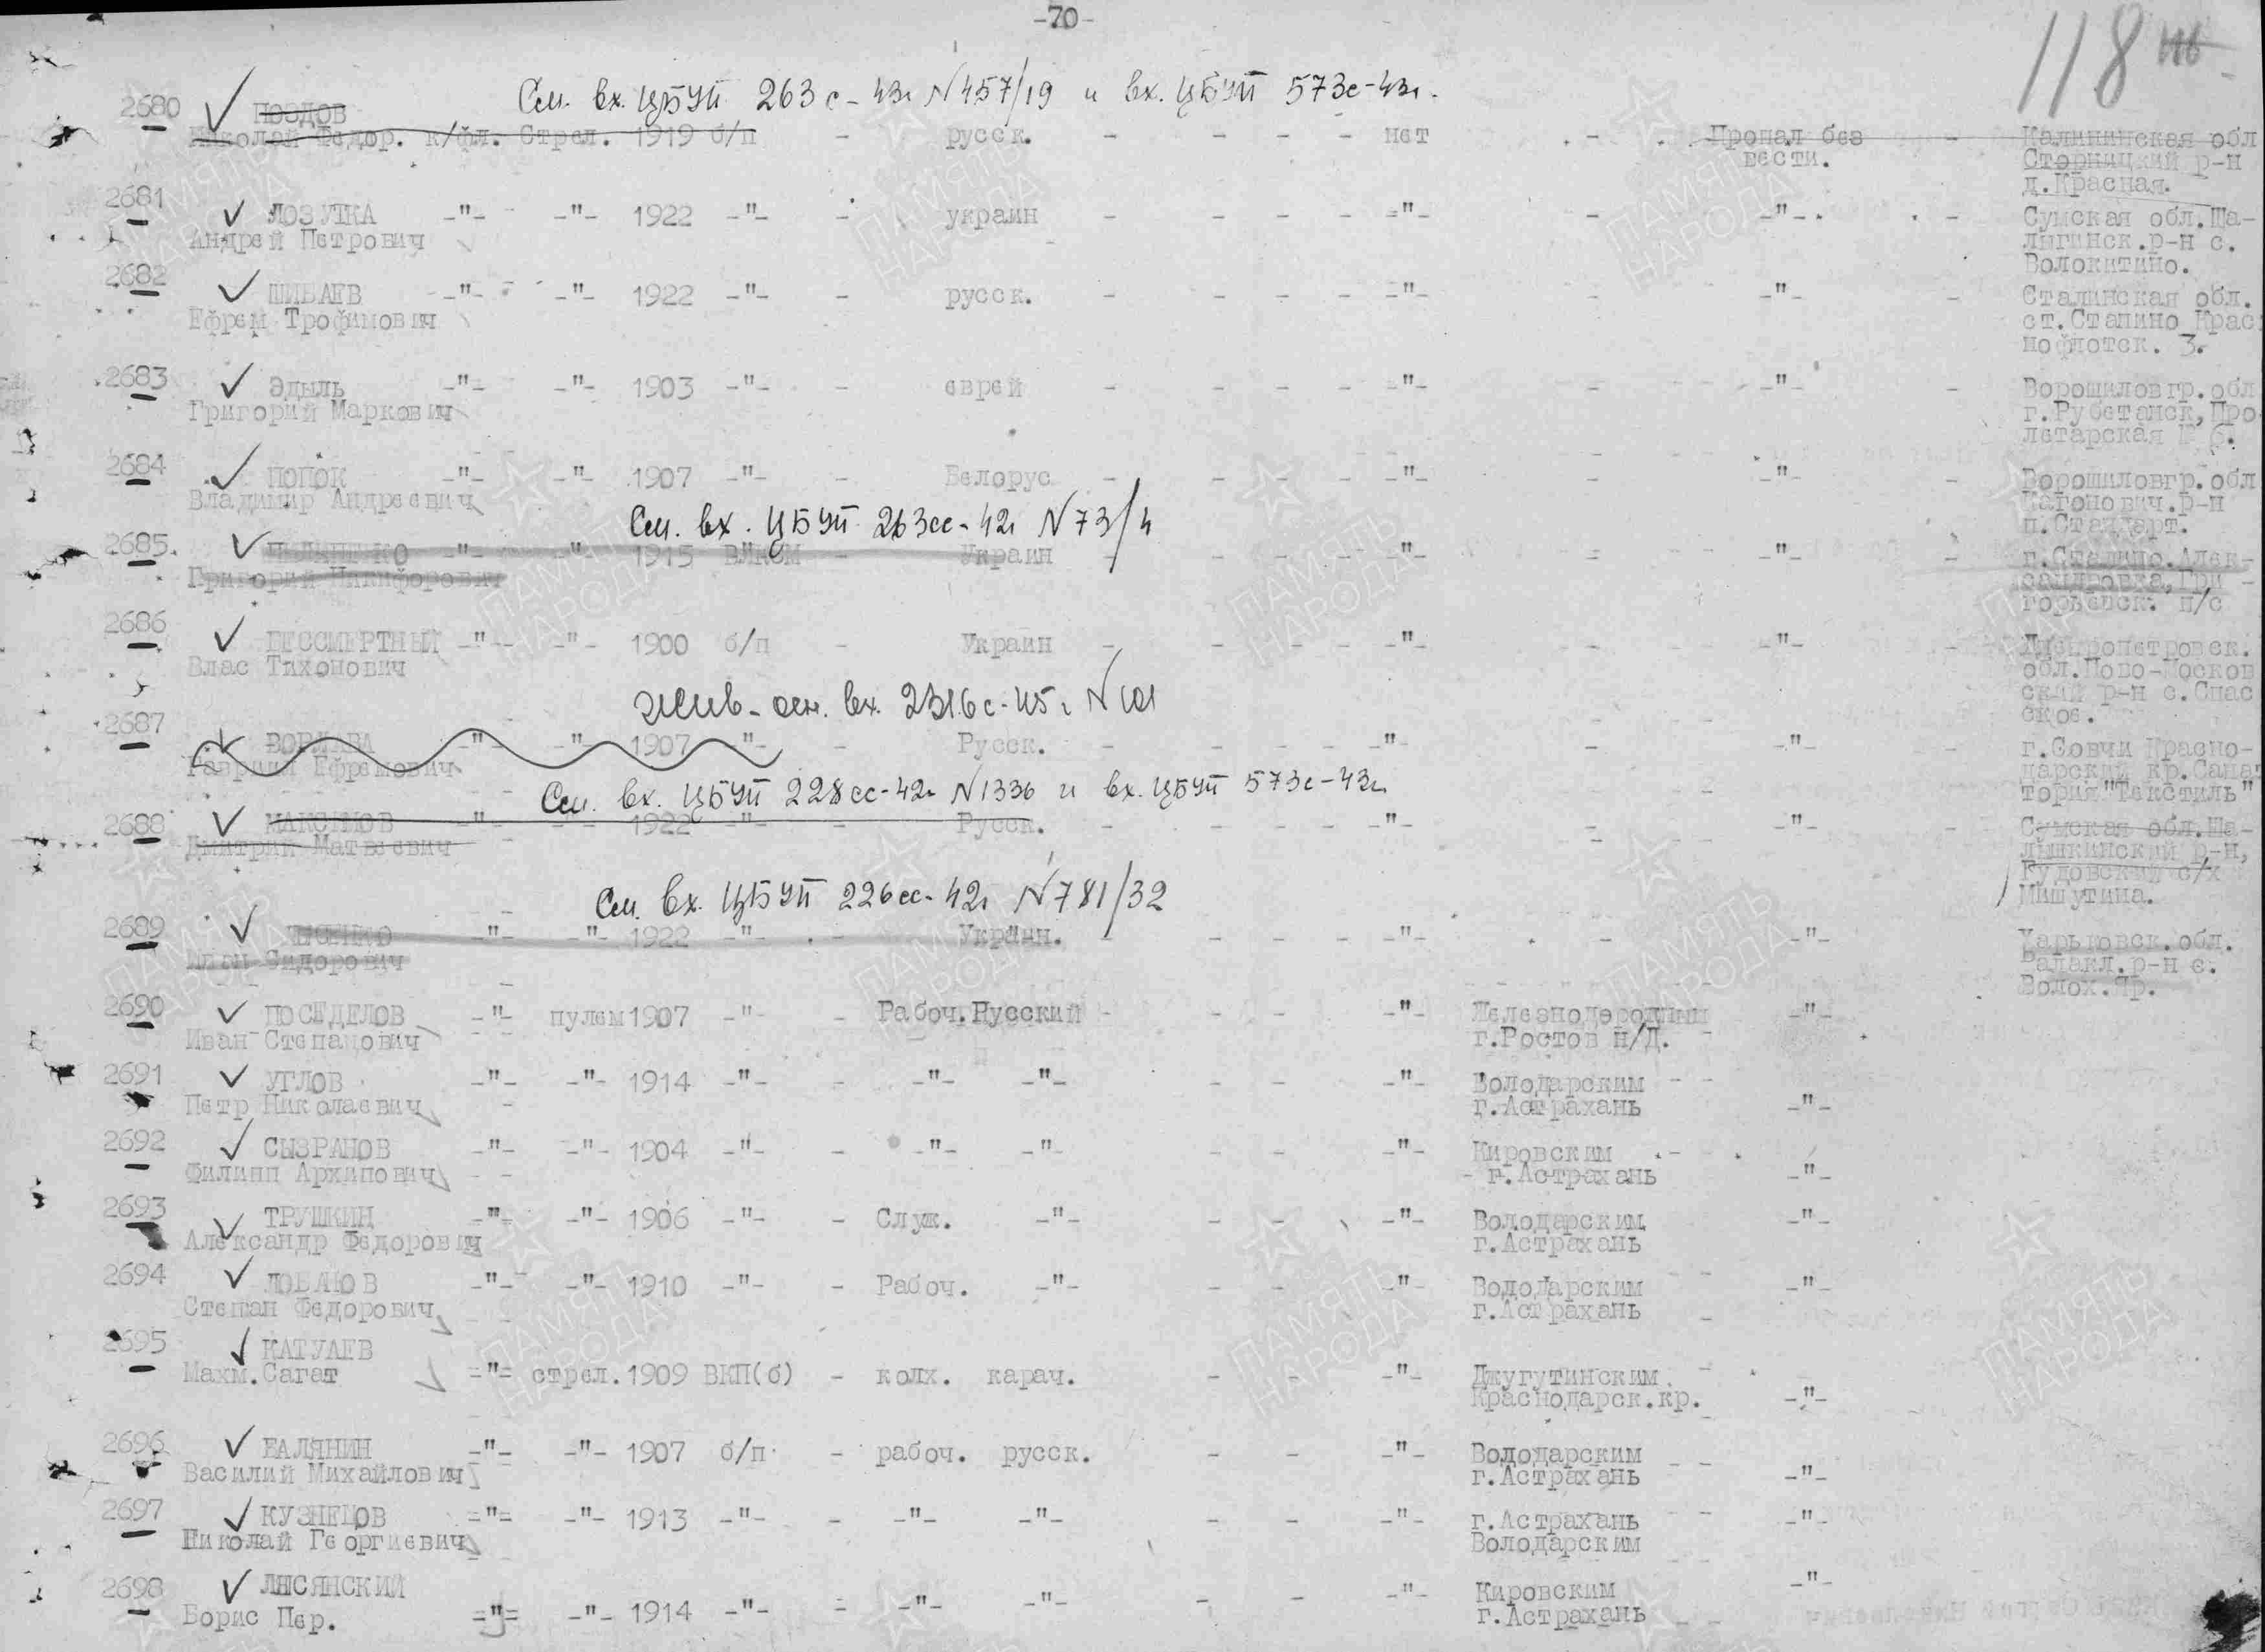 -70-
118
См. вх. ЦБУП 263с-43г N457/19 и вх. ЦБУП 573с-43г.
2680 ПОЗДОВ
Николай Федор. к/фл. Стрел. 1919 б/п - русск. - - - - нет - Пропал без - Калининская обл
вести. Сторицкий р-н
д.Красная.
2681 ЛОЗУТКА -"- -"- 1922 -"- - украин - - - - ="- - -"- - Сумская обл.Ша-
Андрей Петрович лыгинск.р-н с.
Волокитино.
2682 ШИБАЕВ -"- -"- 1922 -"- - русск. - - - - -"- - -"- - Сталинская обл.
Ефрем Трофимович ст.Сталино Крас
нофлотск. 3.
2683 Эдыль -"- -"- 1903 -"- - еврей - - - - -"- - -"- - Ворошиловгр.обл
Григорий Маркович г.Рубетанск,Про
летарская № 6.
2684 ПОПОК -"- -"- 1907 -"- - Белорус - - - - -"- - -"- - Ворошиловгр.обл
Владимир Андреевич Кагонович.р-н
п.Стандарт.
См. вх. ЦБУП 263сс-42г N73/4
2685. -"- -"- 1915 ВЛКСМ - Украин - - - - -"- - -"- - г.Сталино.Алек-
Григорий Никифорович сандровка,Гри-
горьевск. п/с
2686 БЕССМЕРТНЫЙ -"- -"- 1900 б/п - Украин - - - - -"- - -"- - Днепропетровск.
Влас Тихонович обл.Ново-Москов
ский р-н с.Спас
ское.
жив - осн. вх. 2316с-45г N101
2687 -"- -"- 1907 -"- - Русск. - - - - -"- - -"- - г.Совчи Красно-
Гаврила Ефремович дарский кр.Сана
тория "Текстиль"
См. вх. ЦБУП 228сс-42г N1336 и вх. ЦБУП 573с-43г.
2688 МАКСИМОВ -"- -"- 1922 -"- - Русск. - - - - -"- - -"- - Сумская обл.Ша-
Дмитрий Матвеевич лышкинский р-н,
Кудовский с/х
Мишутина.
См. вх. ЦБУП 226сс-42г N781/32
2689 -"- -"- 1922 -"- - Украин. - - - - -"- - -"- Харьковск.обл.
Иван Сидорович Балакл.р-н с.
Волох.Яр.
2690 ПОСЕДЕЛОВ -"- пулем 1907 -"- - Рабоч.Русский - - - -"- Железнодорожным -"-
Иван Степанович г.Ростов н/Д. -
2691 УГЛОВ -"- -"- 1914 -"- - -"- -"- - - -"- Володарским - -
Петр Николаевич г.Астрахань -"-
2692 СЫЗРАНОВ -"- -"- 1904 -"- - -"- -"- - - -"- Кировским -
Филипп Архипович - г.Астрахань -"-
2693 ТРУШКИН -"- -"- 1906 -"- - Служ. -"- - - -"- Володарским -"-
Александр Федорович г.Астрахань
2694 ЛОБАНОВ -"- -"- 1910 -"- - Рабоч. -"- - - -"- Володарским -"-
Степан Федорович г.Астрахань -
2695 КАТУАЕВ
Махм.Сагат ="= стрел.1909 ВКП(б) - колх. карач. - - -"- Джугутинским
Краснодарск.кр. -"-
2696 БАЛЯНИН -"- -"- 1907 б/п - рабоч. русск. - - -"- Володарским
Василий Михайлович г.Астрахань -"-
2697 КУЗНЕЦОВ ="= -"- 1913 -"- - -"- -"- - - -"- г.Астрахань -"-
Николай Георгиевич Володарским
2698 ЛИСЯНСКИЙ Кировским -"-
Борис Пер. ="= -"- 1914 -"- - -"- -"- - - -"- г.Астрахань